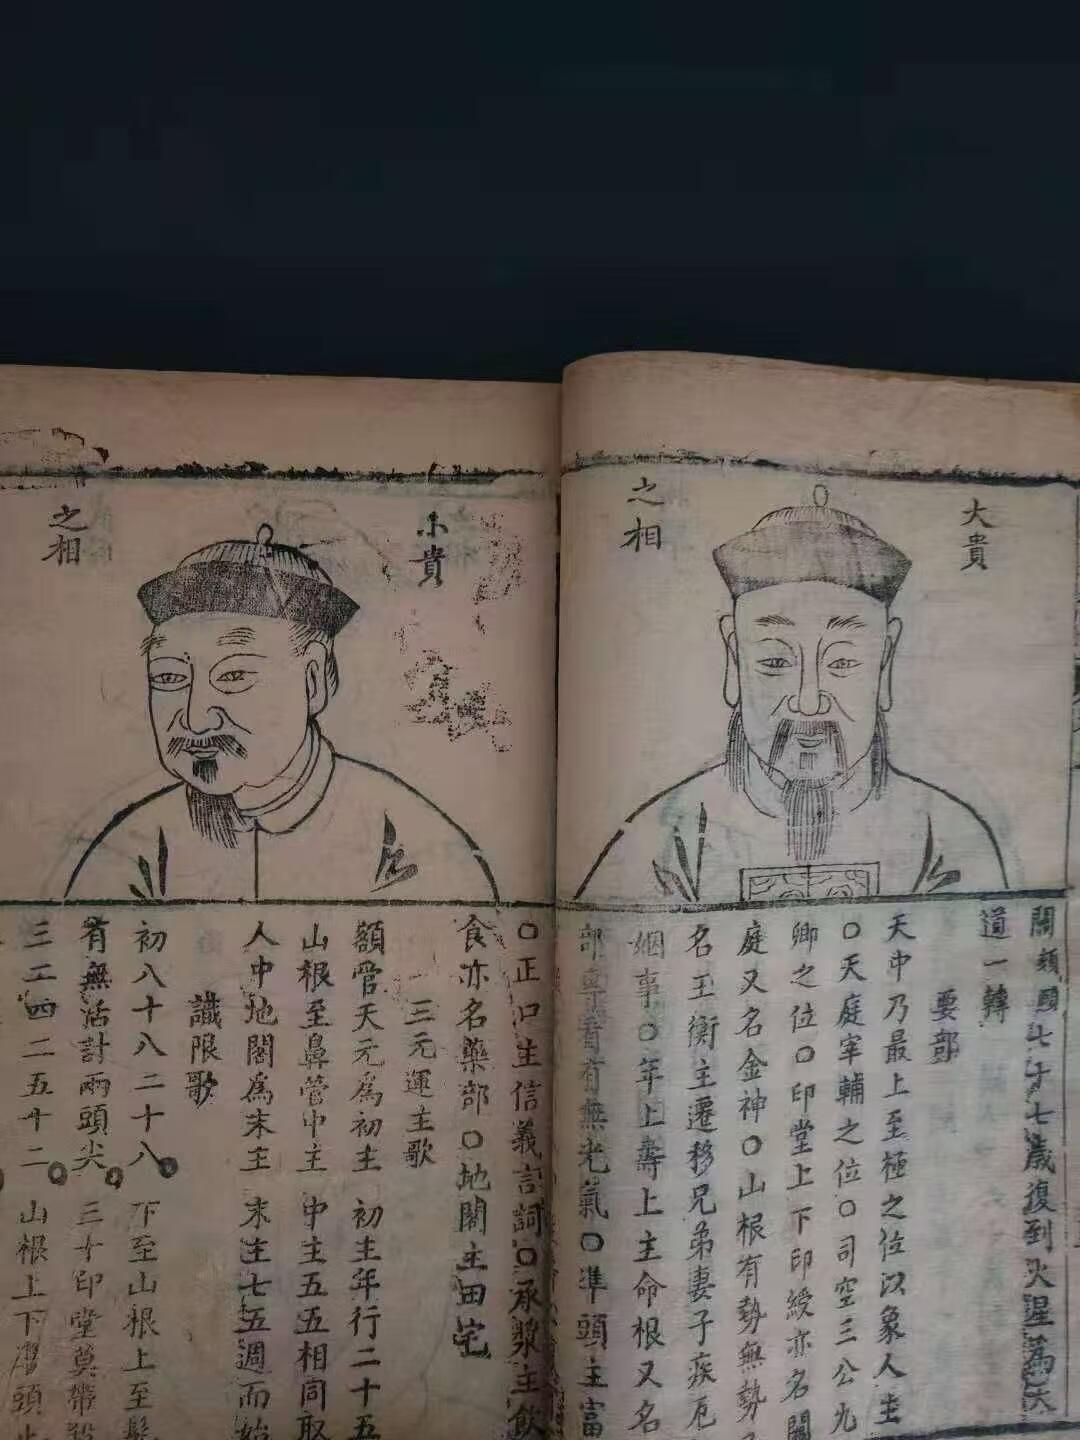 大貴
之相
閣頦頸七十七歲復到火星為天
道一轉
要部
天中乃最上至極之位以象人主
○天庭宰輔之位○司空三公九
卿之位○印堂上下印綬亦名闕
庭又名金神○山根有勢無勢
名玉衡主遷移兄弟妻子疾厄
姻事○年上壽上主命根又名
部有無光氣○準頭主富
小貴
之相
○正口主信義言詞○承漿主飲
食亦名藥部○地閣主田宅
三元運主歌
額管天元為初主 初主年行二十五
山根至鼻管中主 中主五五相同取
人中地閣為末主 末主七五週而始
讖限歌
初八十八二十八 下至山根上至髮
有無活計兩頭尖 三十印堂莫帶殺
三二四二五十二 山根上下頭止